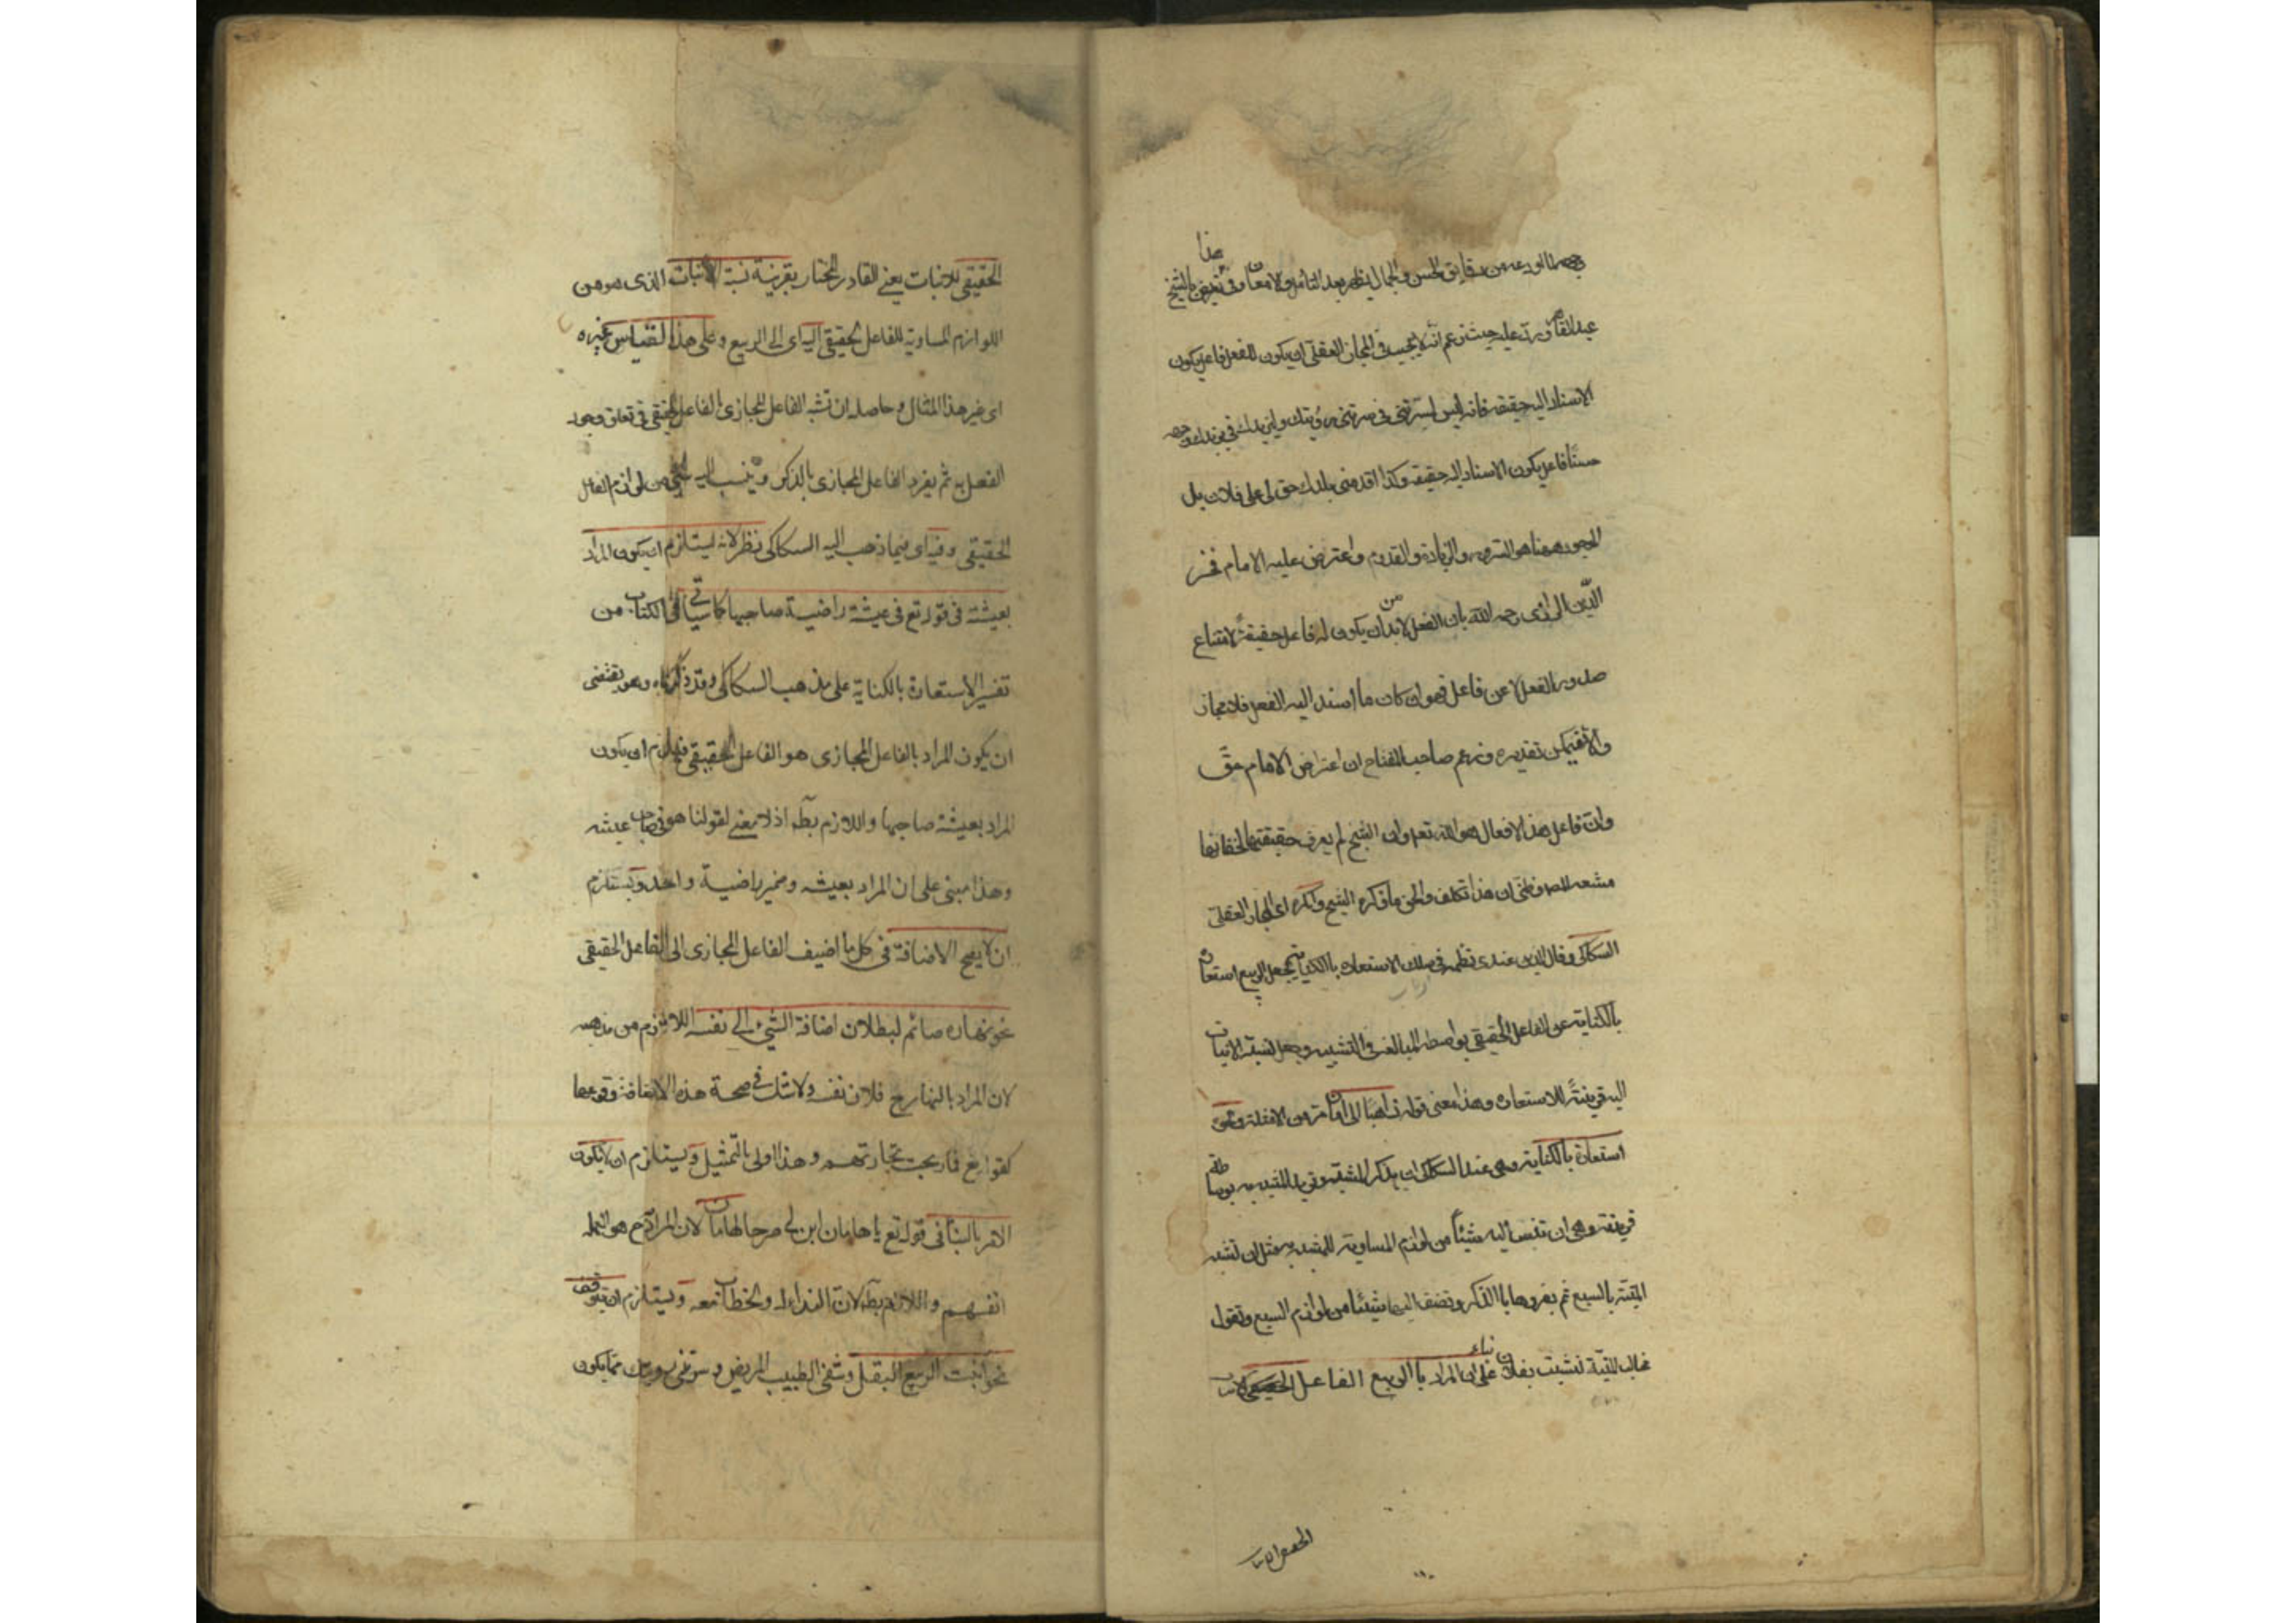 وجهه لما اودعه من دقايق الحسن والجمال يظهر بعد التأمل والامعان وفي هذا تعريض بالشيخ
عبد القاهر ورد عليه حيث زعم أنه لا يجب في المجاز العقلي ان يكون للفعل فاعل يكون
الاسناد اليه حقيقة فانه ليس لسرتني في سرتني رؤيتك وليزيدك في يزيدك وجهه
حسنًا فاعل يكون الاسناد اليه حقيقة وكذا اقدمني بلدك حق لي على فلان بل
الموجود ههنا هو السرور والزيادة والقدوم واعترض عليه الامام فخر
الدّين الرازي رحمه الله بان الفعل لابد من ان يكون له فاعل حقيقةً لامتناع
صدور الفعل لا عن فاعل فهو ان كان ما اسند اليه الفعل فلا مجاز
والا فيمكن تقديره وزعم صاحب المفتاح ان اعتراض الامام حقّ
وان فاعل هذه الافعال هو الله تعم وان الشيخ لم يعرف حقيقتها لخفائها
فتبعه المص وظني ان هذا تكلف والحق ما ذكره الشيخ وانكره اي المجاز العقلي
السكاكي وقال الذي عندي نظمه في سلك الاستعارة باالكناية بجعل الربيع استعارة
بالكناية عن الفاعل الحقيقي بواسطة المبالغة في التشبيه وجعل نسبة الانبات
اليه قرينةً للاستعارة وهذا معنى قوله ذاهبًا الى ان ما مر من الامثلة ونحوه
استعارة بالكناية وهي عند السكاكي ان يذكر المشبه ويريد المشبه به بوساطة
قرينة وهي ان تنسب اليه شيئًا من لوازم المساوية للمشبه به مثل ان تشبه
المنيّة بالسبع ثم تفردها باالذكر وتضيف اليها شيئًا من لوازم السبع وتقول
مخالب المنيّة نشبت بفلان بناء على ان المراد باالربيع الفاعل
الحقيقي للانبات يعني القادر المختار بقرينة نسبة الانبات الذي هو من
اللوازم المساوية للفاعل الحقيقي اليه اي الى الربيع وعلى هذا القياس غيره
اي غير هذا المثال وحاصله ان تشبه الفاعل المجازي بالفاعل الحقيقي في تعلق وجود
الفعل به ثم يفرد الفاعل المجازي بالذكر وينسب اليه شئ من لوازم الفاعل
الحقيقي وفيه اي فيما ذهب اليه السكاكي نظر لانه يستلزم ان يكون المراد
بعيشة في قوله تع في عيشة راضية صاحبها كما سيأتي في الكتاب من
تفسير الاستعارة بالكناية على مذهب السكاكي وقد ذكرناه وهو يقتضى
ان يكون المراد بالفاعل المجازي هو الفاعل الحقيقي فيلزم ان يكون
المراد بعيشة صاحبها واللازم بط اذ لا معنى لقولنا هو في صاحب عيشه
وهذا مبني على ان المراد بعيشه وضمير راضية واحد ويستلزم
ان لا يصح الاضافة في كل ما اضيف الفاعل المجازي الى الفاعل الحقيقي
نحو نهاره صائم لبطلان اضافة الشئ الى نفسه اللازم من مذهبه
لان المراد بالنهار ح فلان نفسه ولا شك في صحة هذه الاضافة ووقوعها
كقوله تع فما ربحت تجارتهم وهذا اولى بالتمثيل ويستلزم ان لا يكون
الامر بالبناء في قوله تع يا هامان ابن لي صرحا لهامان لان المراد ح هو العملة
انفسهم واللازم بط لان النداء له والخطاب معه ويستلزم ان يتوقف
نحو انبت الربيع البقل وشفى الطبيب المريض وسرتني رؤيتك مما يكون